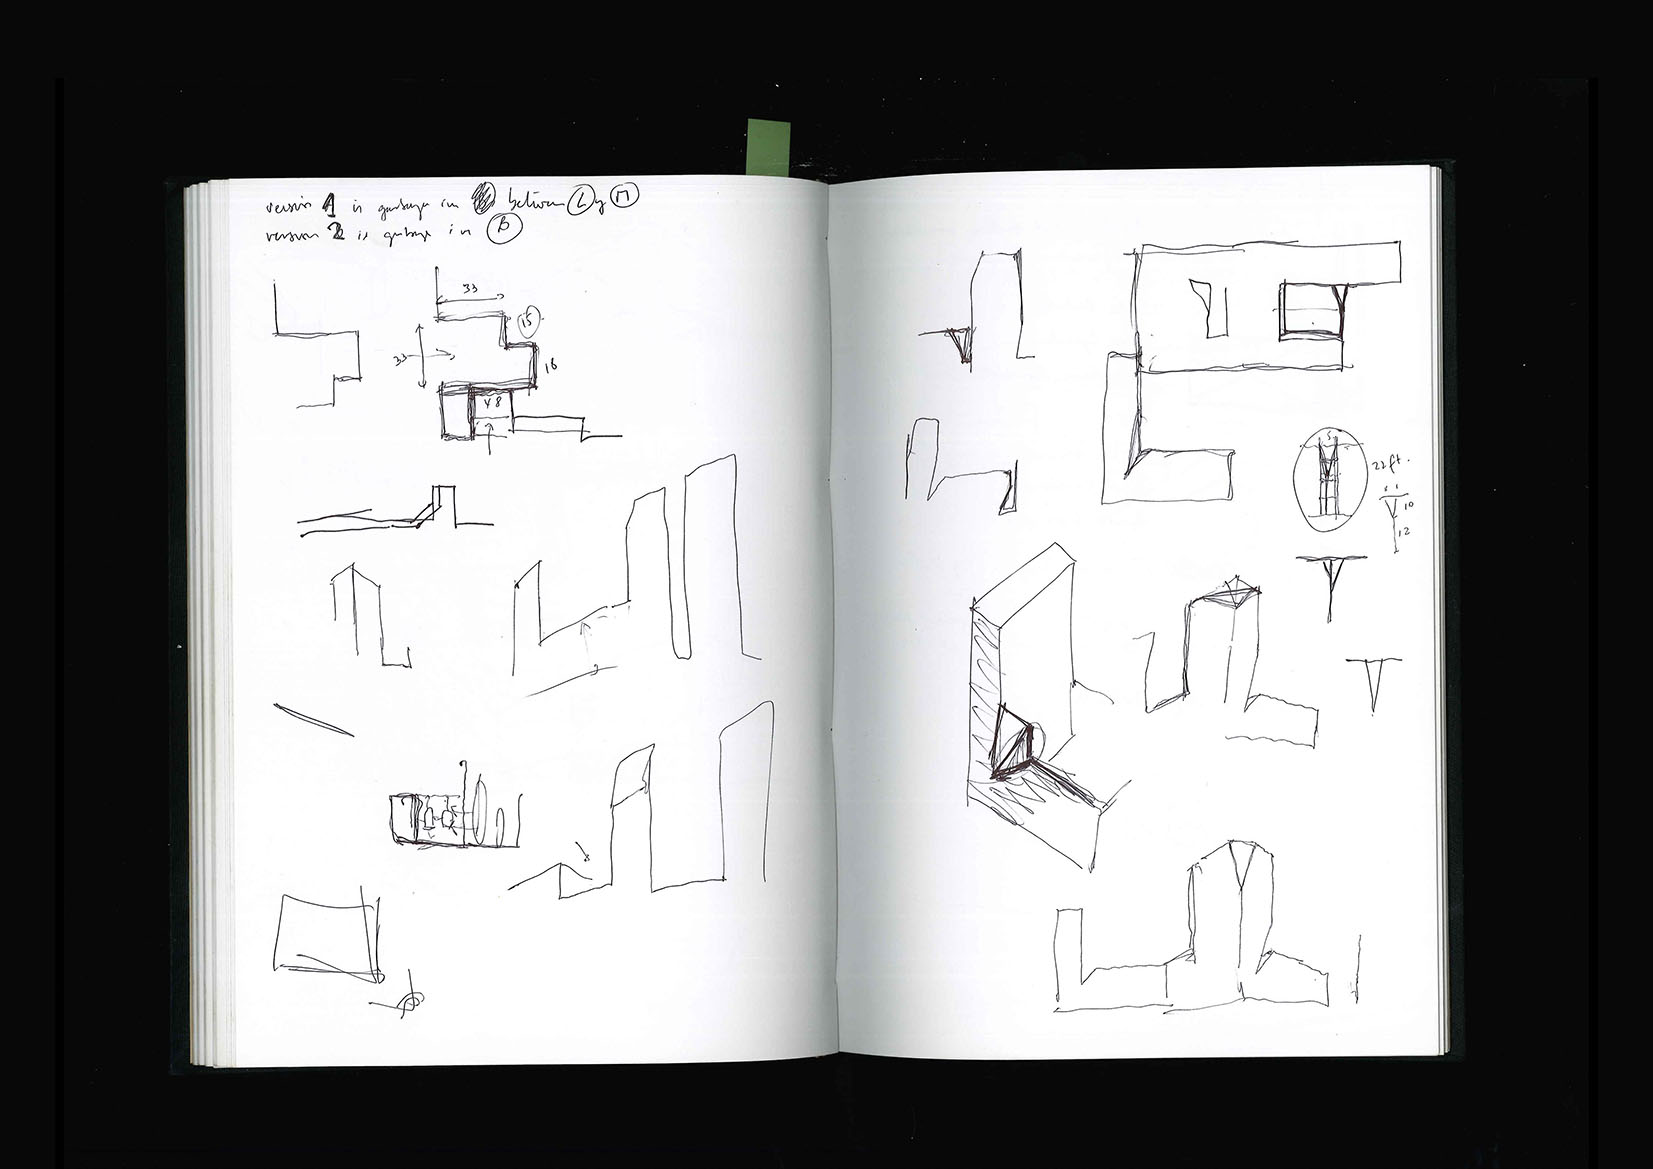 version 1 is garbage in between L y M
version 2 is garbage in B
33
15
33
16
48
22 ft.
10
12